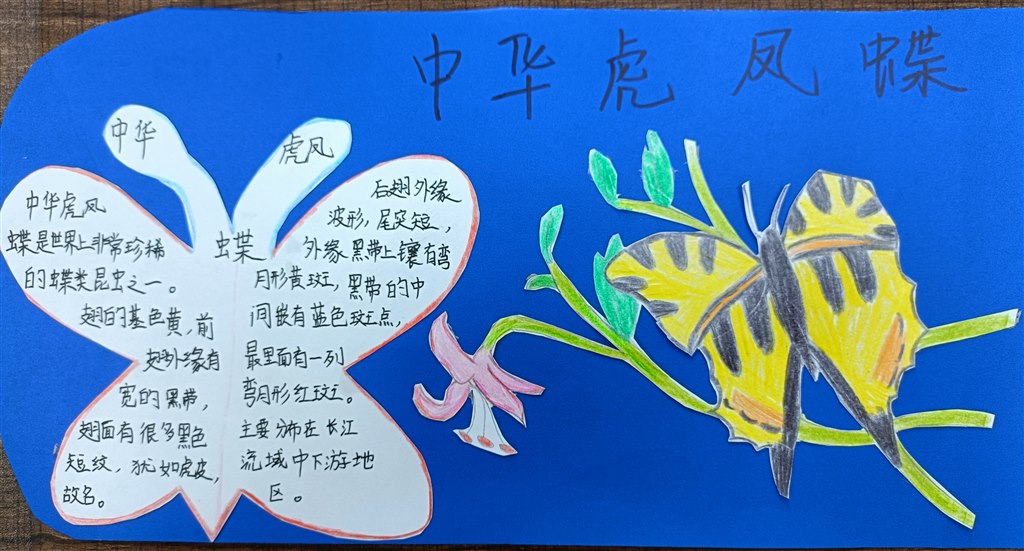 中华虎凤蝶
中华
虎凤
蝶
中华虎凤
蝶是世界上非常珍稀
的蝶类昆虫之一。
翅的基色黄,前
翅外缘有
宽的黑带,
翅面有很多黑色
短纹,犹如虎皮,
故名。
后翅外缘
波形,尾突短,
外缘黑带上镶有弯
月形黄斑,黑带的中
间嵌有蓝色斑点,
最里面有一列
弯月形红斑。
主要分布在长江
流域中下游地
区。